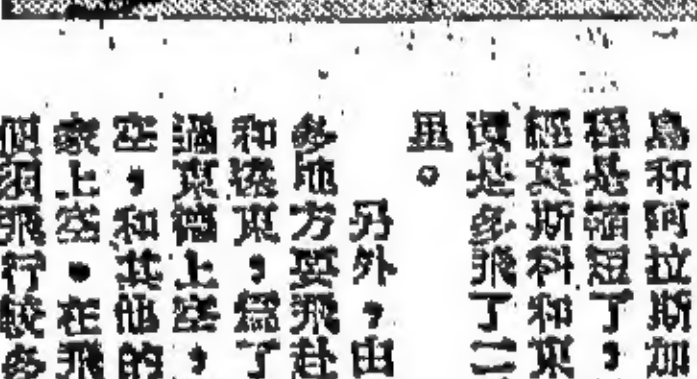 島和阿拉斯加
程是縮短了，
經莫斯科和東
還是多飛了二
里。
另外，由
多地方要飛赴
和遠東，為了
過東徹上空，
空，和其他的
家上空。在飛
須飛行較多